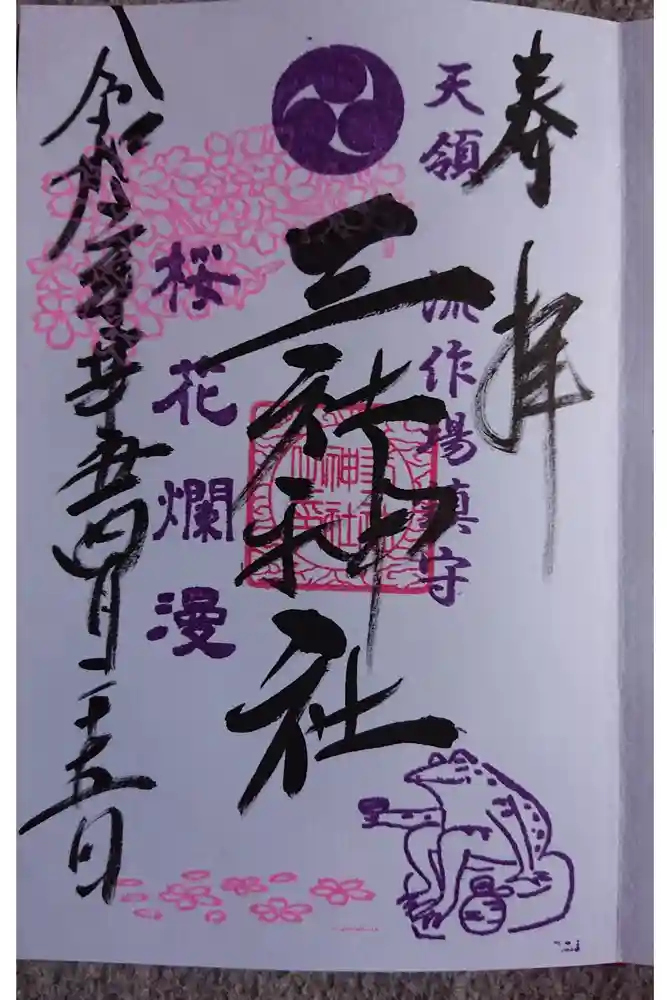 奉拝
天領 流作場鎮守
三社神社
桜花爛漫
令和三年辛丑四月二十五日